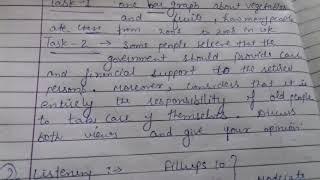 Task-1 one bar graph about vegetables
and fruits, has many people
ate these from 2003 to 2005 in UK
Task-2 → Some people believe that the
government should provide care
and financial support to the retired
persons. Moreover, considers that it is
entirely the responsibility of old people
to take care of themselves. Discuss
both views and give your opinion.
2) Listening :→ Fillups to 7